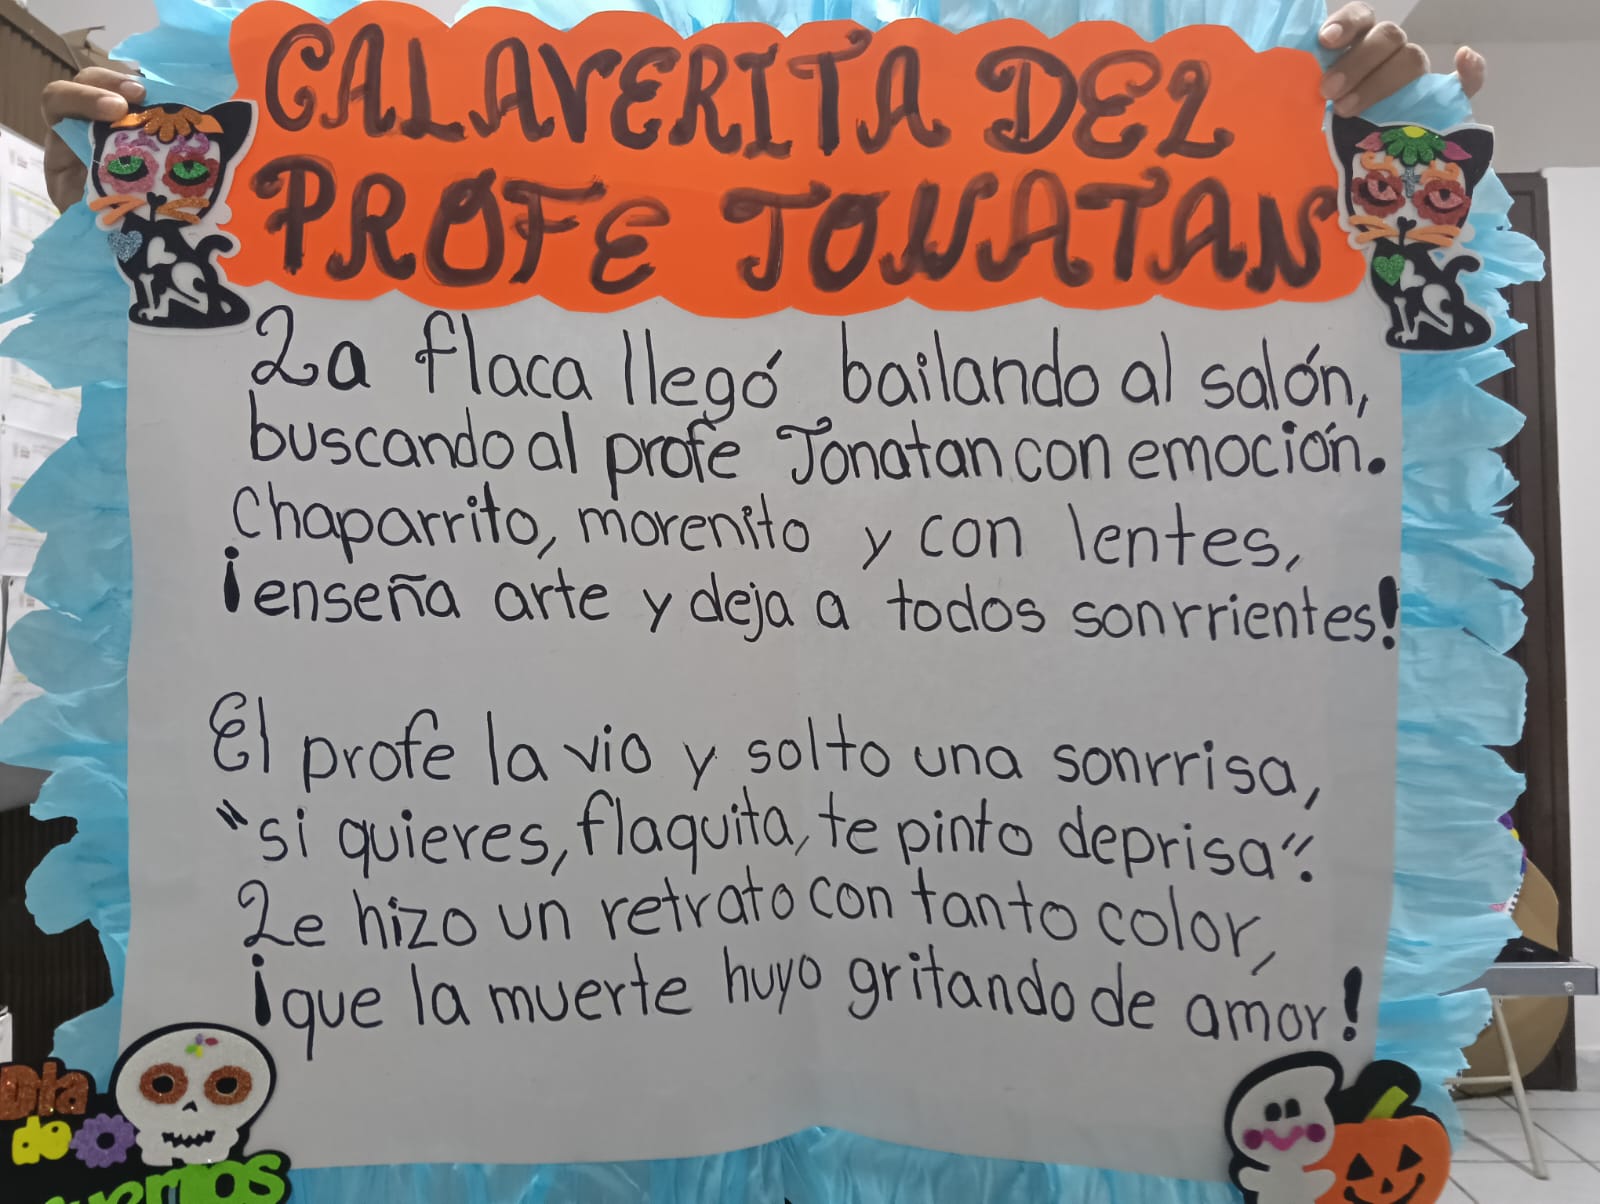 CALAVERITA DEL
PROFE JONATAN
La flaca llegó bailando al salón,
buscando al profe Jonatan con emoción.
Chaparrito, morenito y con lentes,
¡enseña arte y deja a todos sonrrientes!
El profe la vio y solto una sonrrisa,
"si quieres, flaquita, te pinto deprisa".
Le hizo un retrato con tanto color,
¡que la muerte huyo gritando de amor!
Dia
de
muertos